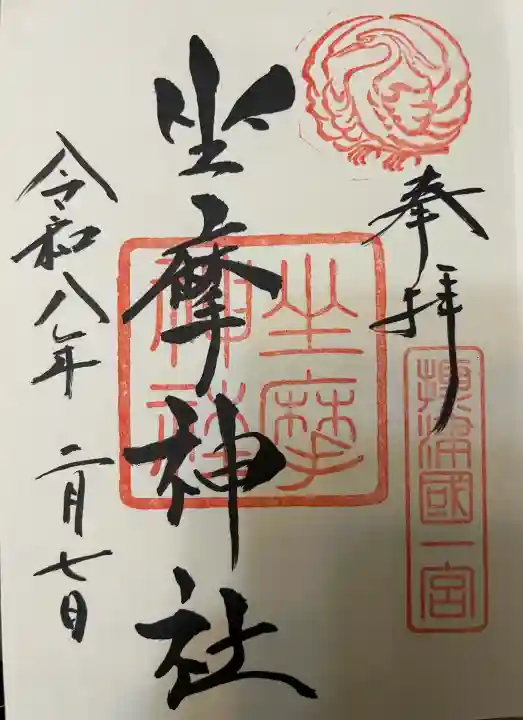 奉拝
摂津國一宮
坐摩神社
坐摩神社
令和八年 二月七日